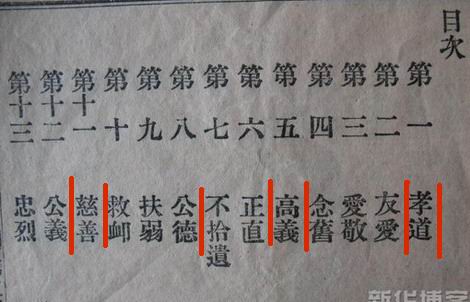 目次
第一 孝道
第二 友愛
第三 愛敬
第四 念舊
第五 高義
第六 正直
第七 不拾遺
第八 公德
第九 扶弱
第十 救卹
第十一 慈善
第十二 公義
第十三 忠烈
新华博客